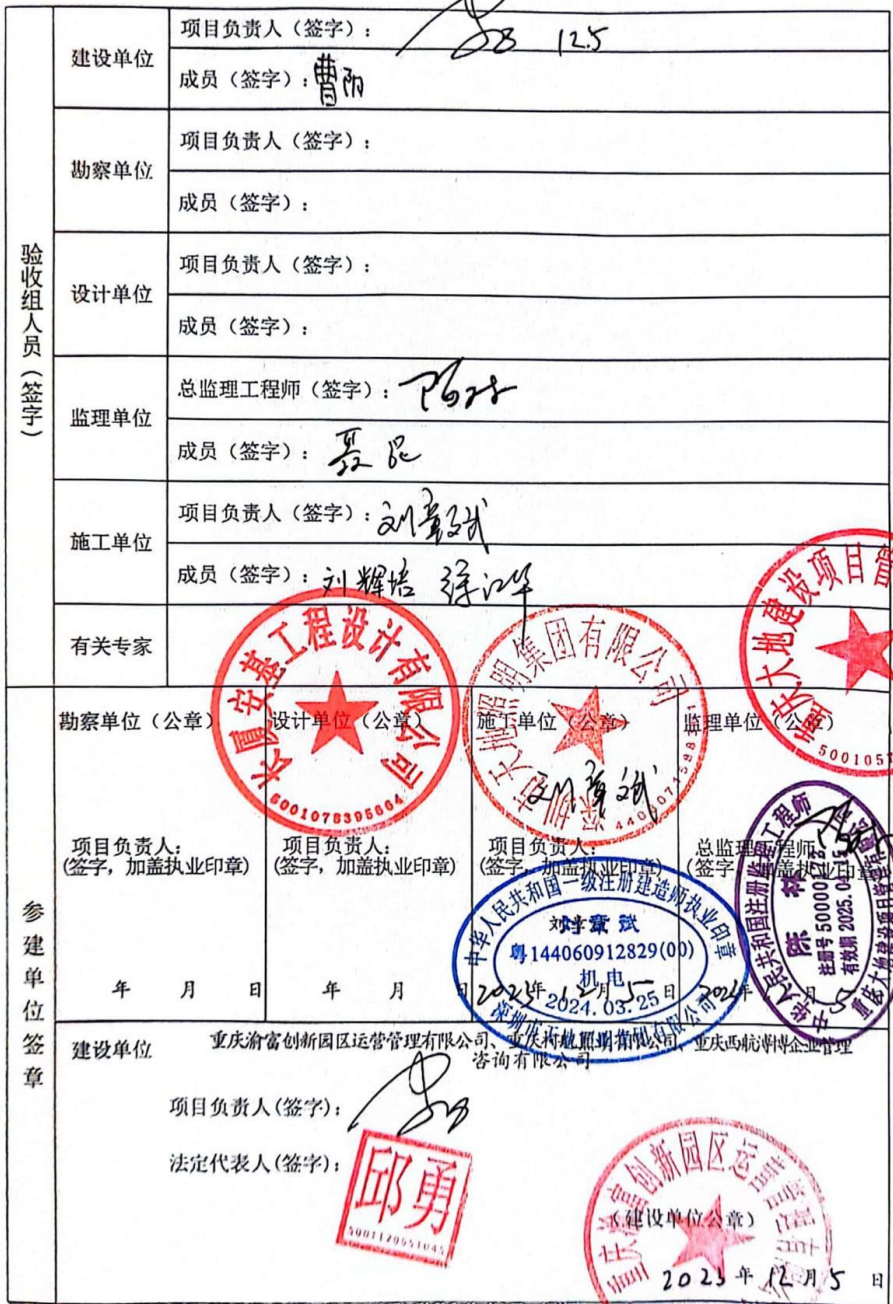 验收组人员（签字）
建设单位
项目负责人（签字）： 12.5
成员（签字）：曹阳
勘察单位
项目负责人（签字）：
成员（签字）：
设计单位
项目负责人（签字）：
成员（签字）：
监理单位
总监理工程师（签字）：
成员（签字）：聂
施工单位
项目负责人（签字）：刘章斌
成员（签字）：刘辉培 徐江华
有关专家
参建单位签章
勘察单位（公章）
项目负责人：
(签字，加盖执业印章)
年 月 日
设计单位（公章）
长厦安基工程设计有限公司
项目负责人：
(签字，加盖执业印章)
年 月 日
施工单位（公章）
深圳市天地照明集团有限公司
刘章斌
项目负责人：
(签字，加盖执业印章)
中华人民共和国一级注册建造师执业印章
刘章斌
粤144060912829(00)
机电
2024.03.25
2023年 12月 5日
监理单位（公章）
重庆大地建设项目管
500105
总监理工程师：
(签字，加盖执业印章)
中华人民共和国注册监理工程师
陈
注册号 500001
有效期 2025.0
2023年 月 5
建设单位
重庆渝富创新园区运营管理有限公司、
咨询有限公司
项目负责人(签字)：
法定代表人(签字)：
邱勇
重庆渝富创新园区运营管理有限公司
(建设单位公章)
2023 年 12 月 5 日